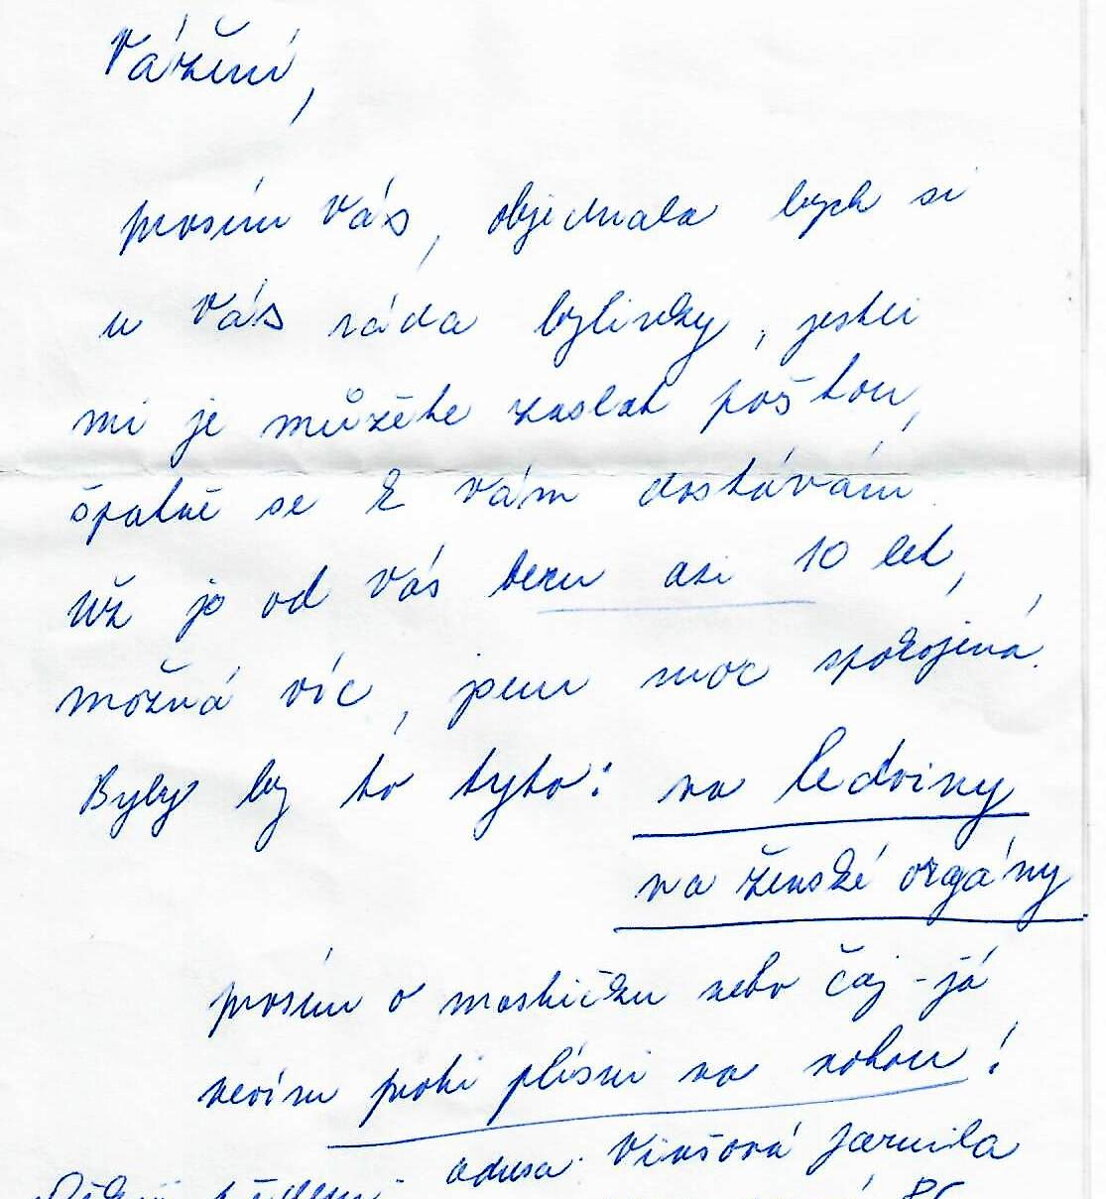 Vážení,
prosím Vás, objednala bych si
u Vás ráda bylinky, jestli
mi je můžete zaslat poštou,
špatně se k Vám dostávám.
Už je od Vás beru asi 10 let,
možná víc, jsem moc spokojená.
Byly by to tyto: na ledviny
na ženské orgány
prosím o mastičku nebo čaj - já
nevím proti plísni na nohou!
adresa: Jarmila